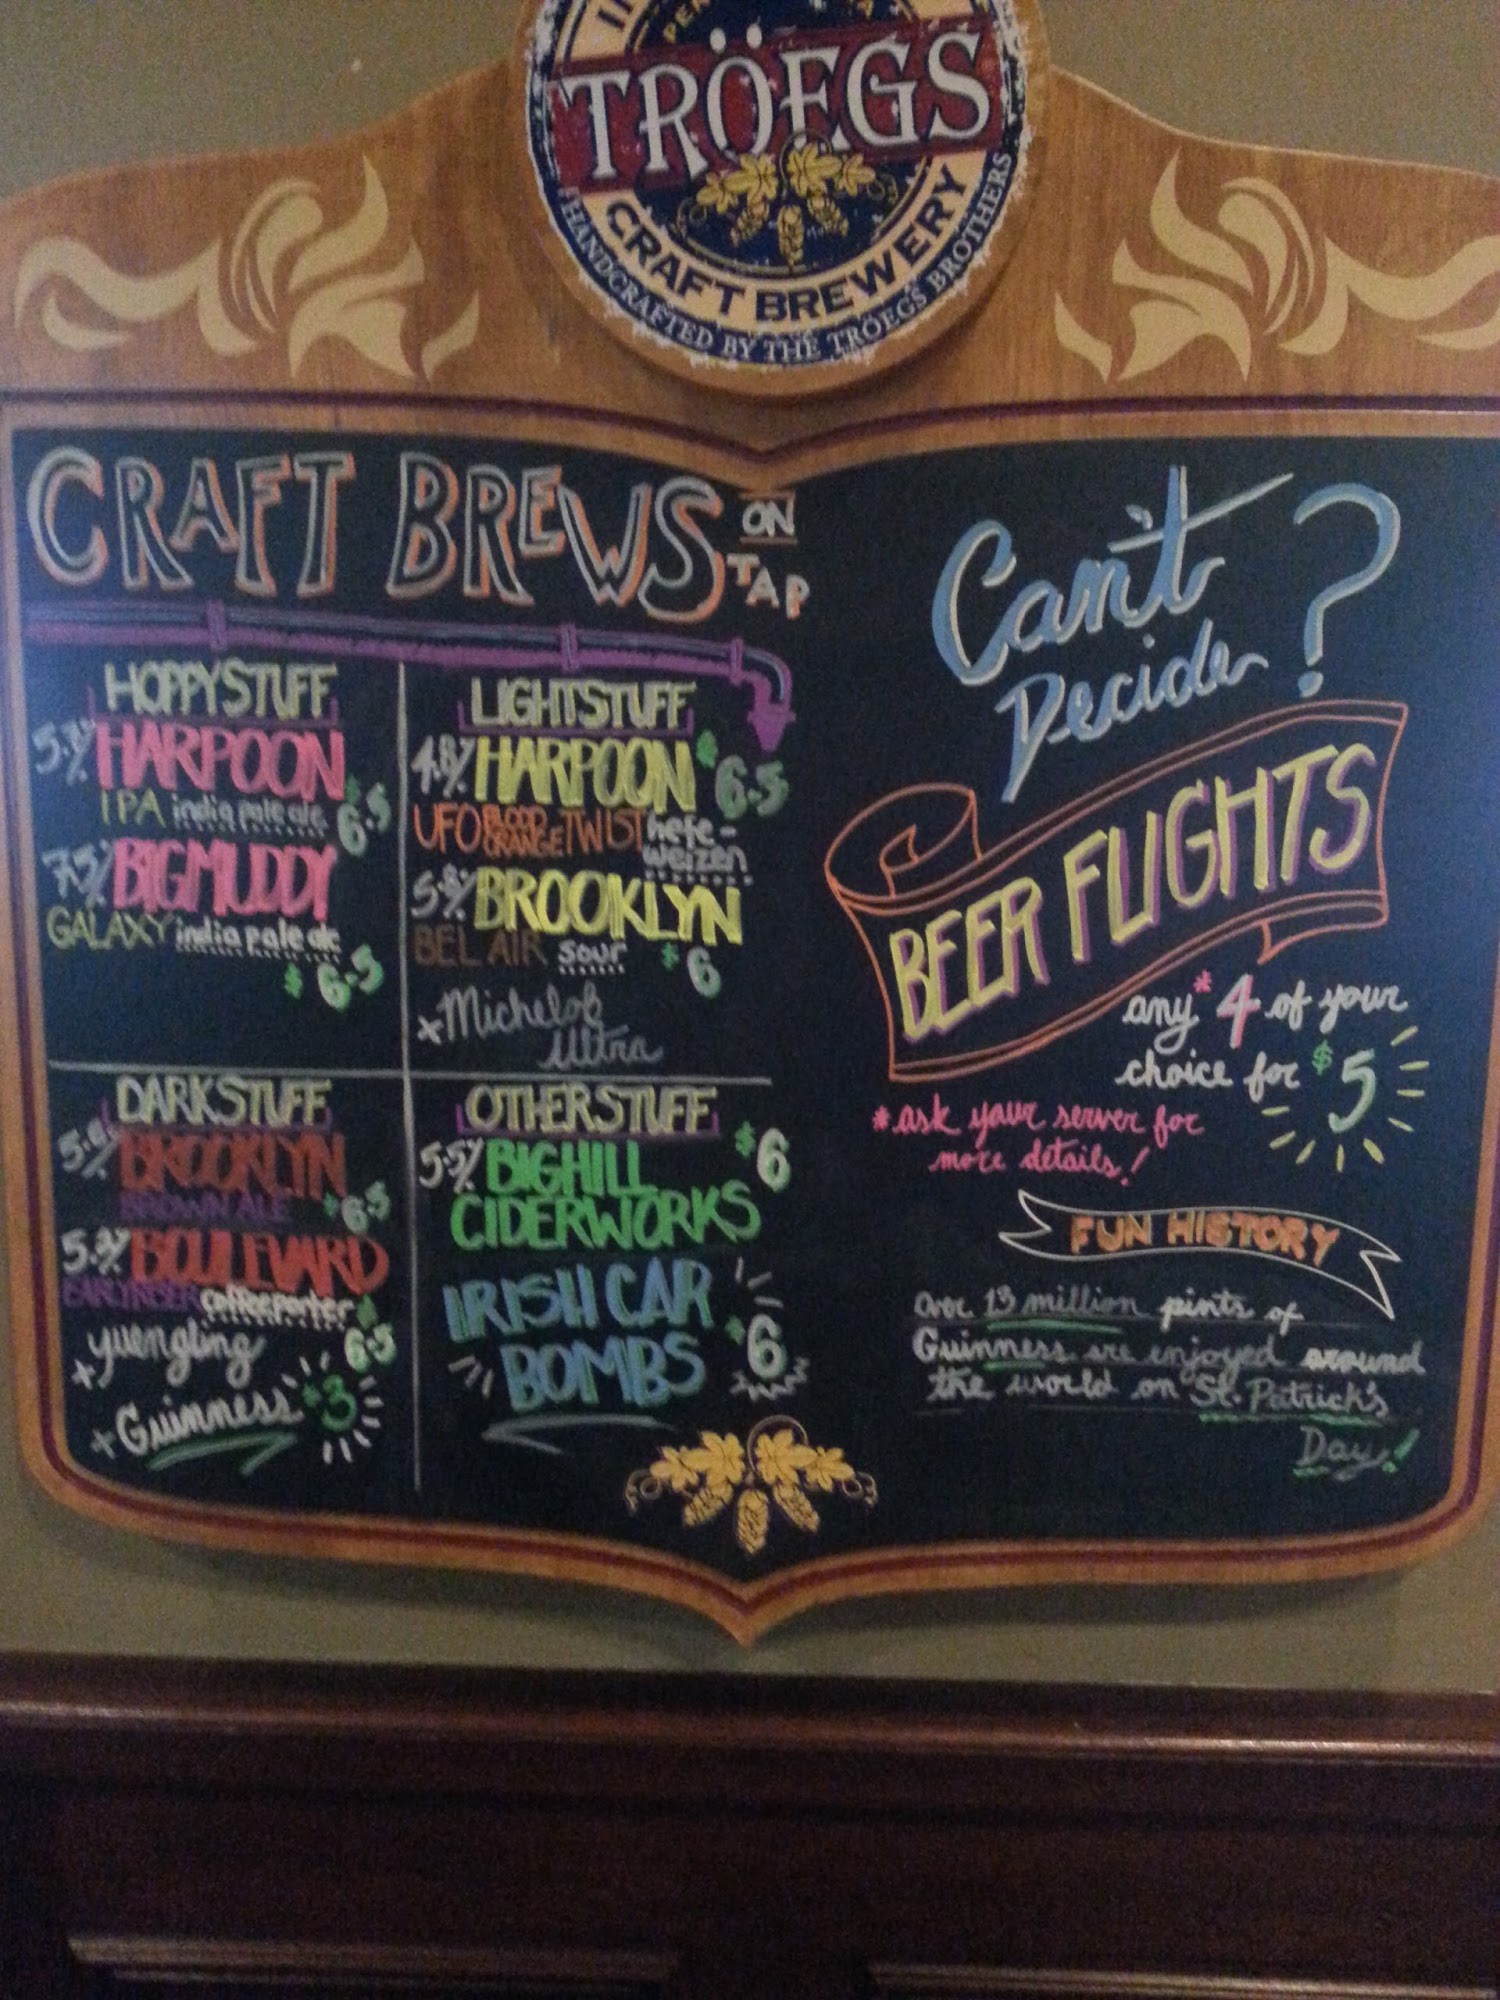 TRÖEGS
CRAFT BREWERY
HANDCRAFTED BY THE TRÖEGS BROTHERS
CRAFT BREWS ON TAP
HOPPY STUFF
HARPOON
IPA india pale ale $6.5
7.5% BIG MUDDY
GALAXY india pale ale
$6.5
LIGHT STUFF
4.8% HARPOON $6.5
UFO BLOOD ORANGE TWIST hefe-
weizen
5.8% BROOKLYN
BEL AIR sour $6
+Michelob
Ultra
DARK STUFF
BROOKLYN
BROWN ALE $6.5
BOULEVARD
EARLY RISER coffee porter $
6.5
+yuengling
+Guinness $3
OTHER STUFF
5.5% BIG HILL $6
CIDERWORKS
IRISH CAR
BOMBS $6
Can't
Decide?
BEER FLIGHTS
any* 4 of your
choice for $5
*ask your server for
more details!
FUN HISTORY
Over 13 million pints of
Guinness are enjoyed around
the world on St. Patrick's
Day!